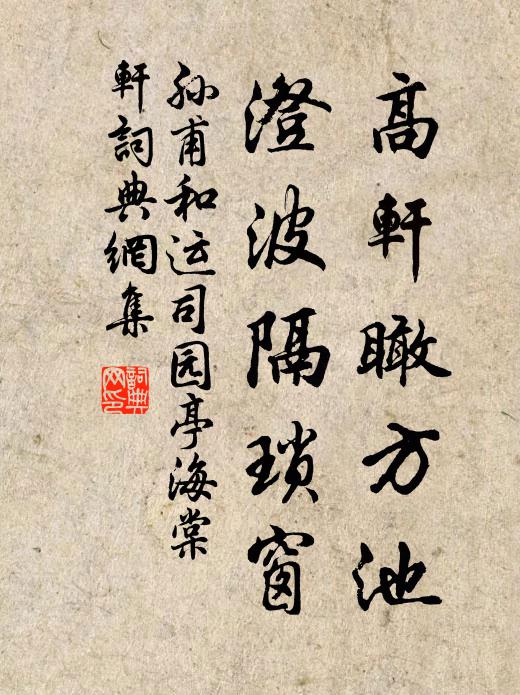 高軒瞰方池
澄波隔瑣窗
孙甫和运司园亭海棠
軒詞典網集
詞典網印